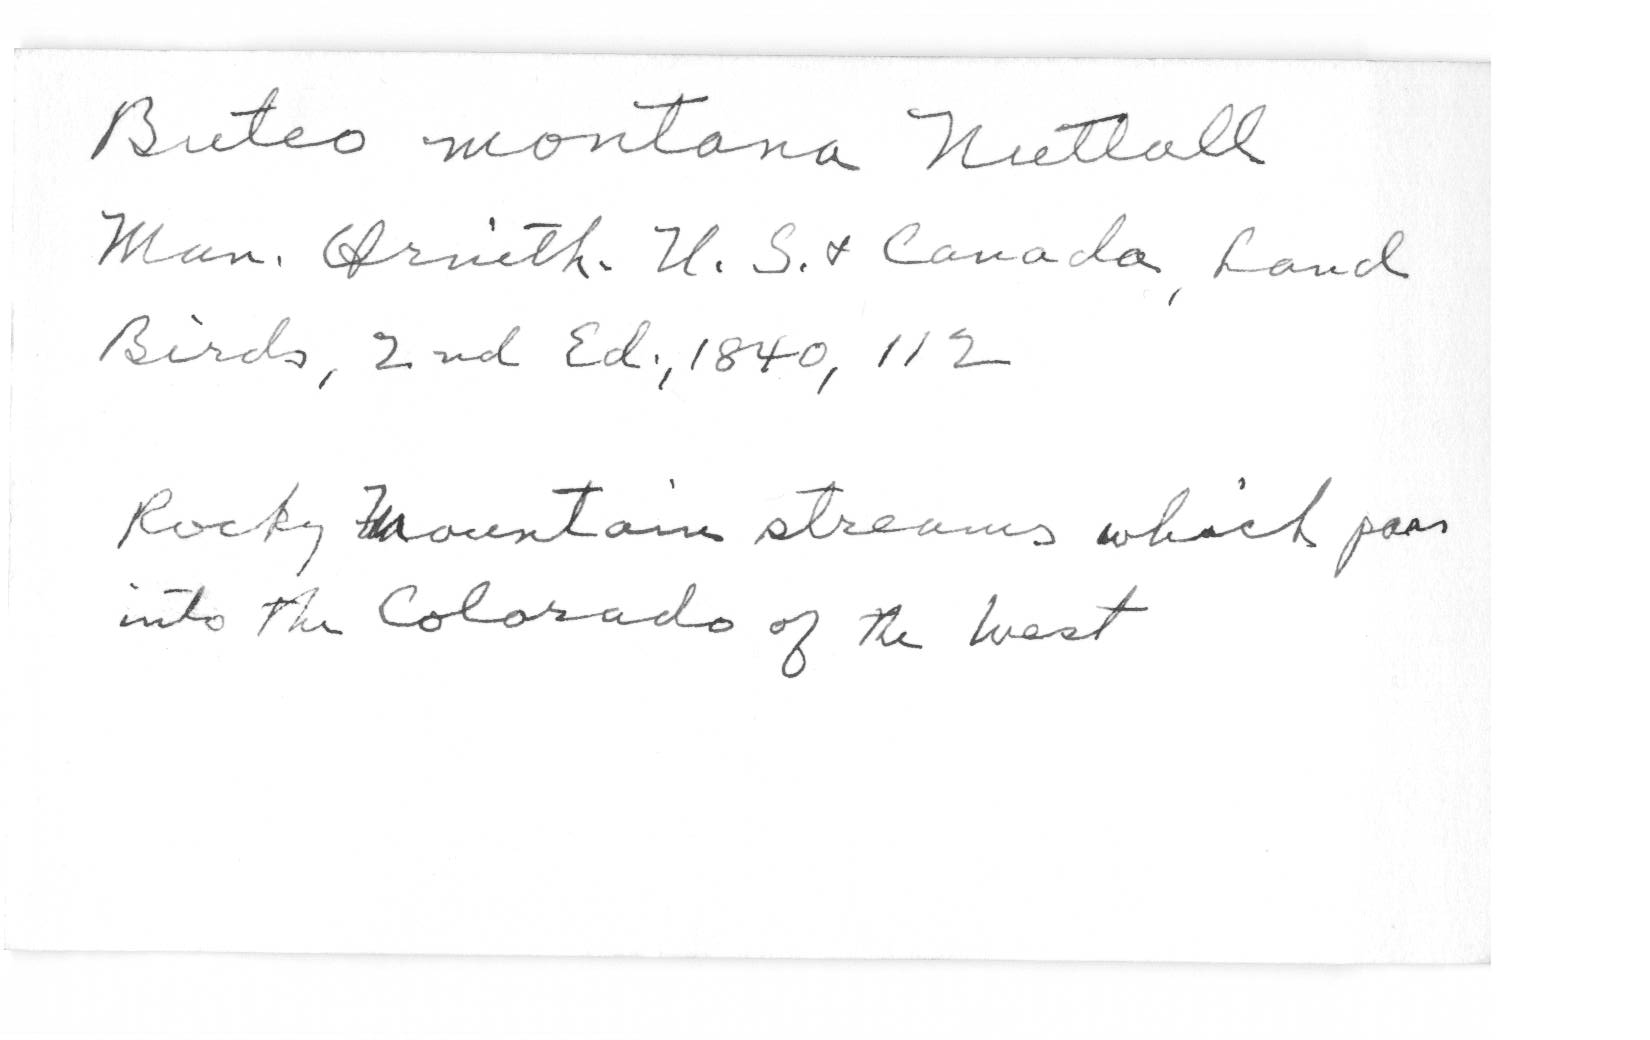 Buteo montana Nuttall
Man. Ornith. U. S. & Canada, Land
Birds, 2nd Ed., 1840, 112
Rocky Mountain streams which pass
into the Colorado of the West